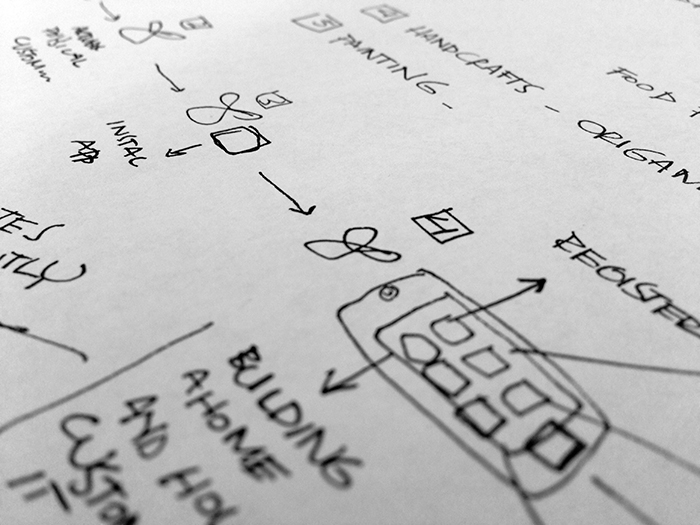 2
3
2
HANDCRAFTS -
3
PAINTING -
FOOD
ORIGAM
INSTAL
APP
4
REGISTER
TES
TLY
BUILDING
A HOME
AND HOW
CUSTOM
IT